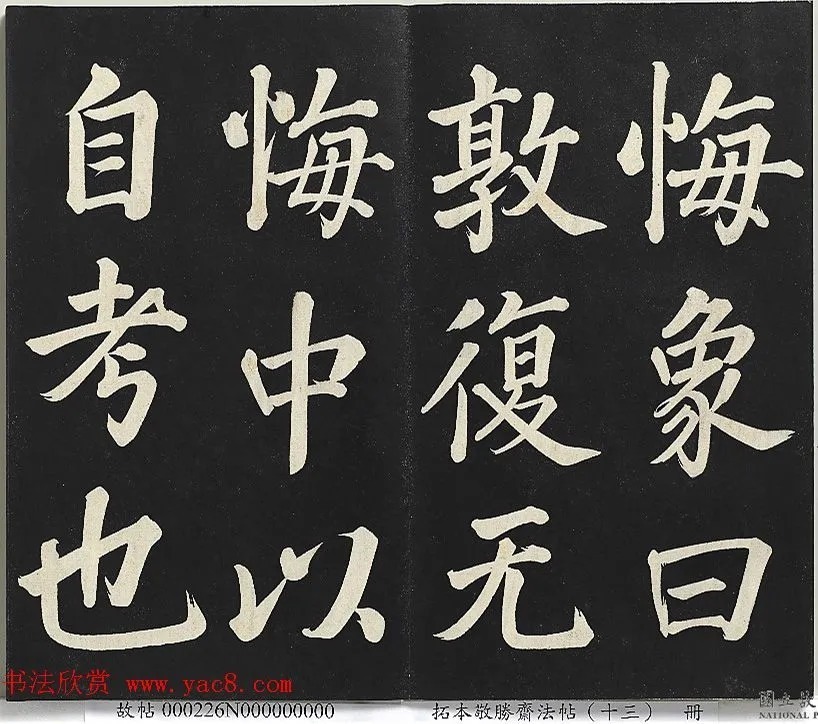 悔象曰
敦復无
悔中以
自考也
书法欣赏 www.yac8.com
故帖 000226N000000000 拓本敬勝齋法帖（十三） 冊
NATIONAL P